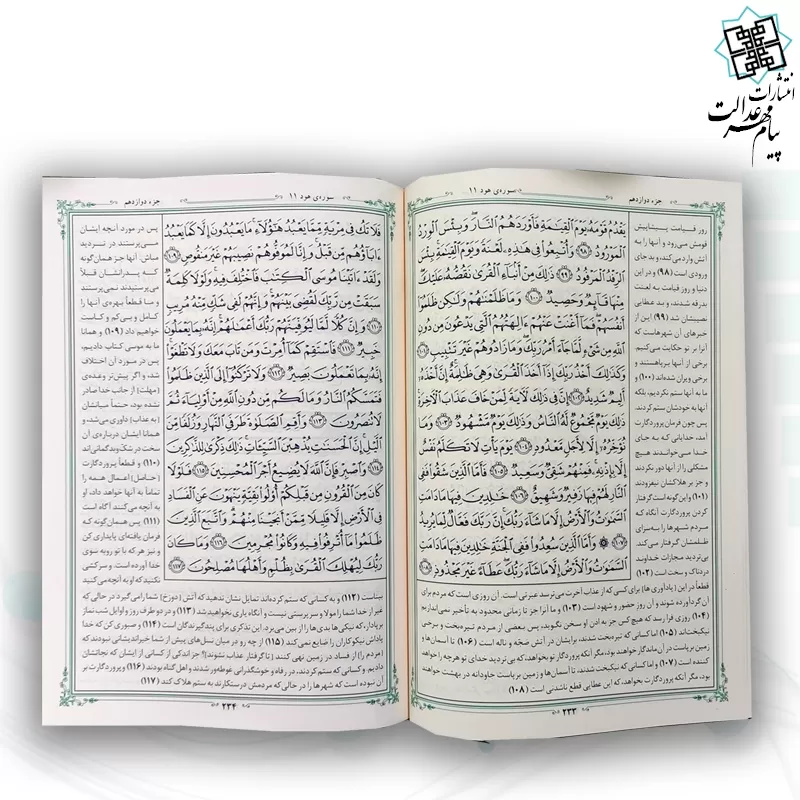 انتشارات
پیام مهر عدالت
جزء دوازدهم
سوره‌ی هود ۱۱
يَقْدُمُ قَوْمَهُ يَوْمَ الْقِيَٰمَةِ فَأَوْرَدَهُمُ النَّارَ وَبِئْسَ الْوِرْدُ
الْمَوْرُودُ ﴿٩٨﴾ وَأُتْبِعُوا فِي هَٰذِهِ لَعْنَةً وَيَوْمَ الْقِيَٰمَةِ بِئْسَ
الرِّفْدُ الْمَرْفُودُ ﴿٩٩﴾ ذَٰلِكَ مِنْ أَنْبَاءِ الْقُرَىٰ نَقُصُّهُ عَلَيْكَ
مِنْهَا قَائِمٌ وَحَصِيدٌ ﴿١٠٠﴾ وَمَا ظَلَمْنَٰهُمْ وَلَٰكِنْ ظَلَمُوا
أَنْفُسَهُمْ فَمَا أَغْنَتْ عَنْهُمْ ءَالِهَتُهُمُ الَّتِي يَدْعُونَ مِنْ دُونِ
اللَّهِ مِنْ شَيْءٍ لَمَّا جَاءَ أَمْرُ رَبِّكَ وَمَا زَادُوهُمْ غَيْرَ تَتْبِيبٍ ﴿١٠١﴾
وَكَذَٰلِكَ أَخْذُ رَبِّكَ إِذَا أَخَذَ الْقُرَىٰ وَهِيَ ظَٰلِمَةٌ إِنَّ أَخْذَهُ
أَلِيمٌ شَدِيدٌ ﴿١٠٢﴾ إِنَّ فِي ذَٰلِكَ لَءَايَةً لِمَنْ خَافَ عَذَابَ الْءَاخِرَةِ
ذَٰلِكَ يَوْمٌ مَجْمُوعٌ لَهُ النَّاسُ وَذَٰلِكَ يَوْمٌ مَشْهُودٌ ﴿١٠٣﴾ وَمَا
نُؤَخِّرُهُ إِلَّا لِأَجَلٍ مَعْدُودٍ ﴿١٠٤﴾ يَوْمَ يَأْتِ لَا تَكَلَّمُ نَفْسٌ
إِلَّا بِإِذْنِهِ فَمِنْهُمْ شَقِيٌّ وَسَعِيدٌ ﴿١٠٥﴾ فَأَمَّا الَّذِينَ شَقُوا فَفِي
النَّارِ لَهُمْ فِيهَا زَفِيرٌ وَشَهِيقٌ ﴿١٠٦﴾ خَٰلِدِينَ فِيهَا مَا دَامَتِ
السَّمَٰوَٰتُ وَالْأَرْضُ إِلَّا مَا شَاءَ رَبُّكَ إِنَّ رَبَّكَ فَعَّالٌ لِمَا يُرِيدُ
﴿١٠٧﴾ وَأَمَّا الَّذِينَ سُعِدُوا فَفِي الْجَنَّةِ خَٰلِدِينَ فِيهَا مَا دَامَتِ
السَّمَٰوَٰتُ وَالْأَرْضُ إِلَّا مَا شَاءَ رَبُّكَ عَطَاءً غَيْرَ مَجْذُوذٍ ﴿١٠٨﴾
روز قیامت پیشاپیش
قومش می‌رود و آنها را به
آتش وارد می‌کند، و بد جای
ورودی است (۹۸) و در این
دنیا و روز قیامت به لعنت
بدرقه شدند، و بد عطایی
نصیبشان شد (۹۹) این از
خبرهای آن شهرهاست که
آنرا بر تو حکایت می‌کنیم
برخی از آنها برپا هستند، و
برخی ویران شده‌اند (۱۰۰) و
ما به آنها ستم نکردیم، بلکه
آنها به خودشان ستم کردند.
پس چون فرمان پروردگارت
آمد، خدایانی که به جای
خدا می‌خواندند هیچ
مشکلی را از آنها دور نکردند
و جز بر هلاکتشان نیفزودند
(۱۰۱) و این گونه است گرفتار
کردن پروردگارت آنگاه که
مردم شهرها را به سزای
ظلمشان گرفتار می‌کند.
بی‌تردید مجازات خداوند
دردناک و سخت است (۱۰۲)
قطعاً در این (یادآوری ها) برای کسی که از عذاب آخرت می‌ترسد عبرتی است. آن روزی است که مردم برای
آن گردآورده شوند و آن روز حضور و شهود است (۱۰۳) و ما آنرا جز تا زمانی محدود به تأخیر نمی‌اندازیم
(۱۰۴) روزی فرا رسد که هیچ کس جز به اذن او سخن نگوید، پس بعضی از مردم تیره‌بخت و برخی
نیکبخت‌اند (۱۰۵) اما کسانی که تیره‌بخت شدند، برایشان در آتش ضجه و ناله است (۱۰۶) تا آسمان‌ها و
زمین برپاست در آن ماندگار خواهند بود، مگر آنکه پروردگارت بخواهد، که بی تردید خدای تو هر چه را خواهد
کننده است (۱۰۷) و اما کسانی که نیکبخت شدند، تا آسمان‌ها و زمین برپاست جاودانه در بهشت خواهند
بود، مگر آنکه پروردگارت بخواهد، که این عطایی قطع ناشدنی است (۱۰۸)
۲۳۳
سوره‌ی هود ۱۱
جزء دوازدهم
فَلَا تَكُ فِي مِرْيَةٍ مِمَّا يَعْبُدُ هَٰؤُلَاءِ مَا يَعْبُدُونَ إِلَّا كَمَا يَعْبُدُ
ءَابَاؤُهُمْ مِنْ قَبْلُ وَإِنَّا لَمُوَفُّوهُمْ نَصِيبَهُمْ غَيْرَ مَنْقُوصٍ ﴿١٠٩﴾
وَلَقَدْ ءَاتَيْنَا مُوسَى الْكِتَٰبَ فَاخْتُلِفَ فِيهِ وَلَوْلَا كَلِمَةٌ
سَبَقَتْ مِنْ رَبِّكَ لَقُضِيَ بَيْنَهُمْ وَإِنَّهُمْ لَفِي شَكٍّ مِنْهُ مُرِيبٍ
﴿١١٠﴾ وَإِنَّ كُلًّا لَمَّا لَيُوَفِّيَنَّهُمْ رَبُّكَ أَعْمَٰلَهُمْ إِنَّهُ بِمَا يَعْمَلُونَ
خَبِيرٌ ﴿١١١﴾ فَاسْتَقِمْ كَمَا أُمِرْتَ وَمَنْ تَابَ مَعَكَ وَلَا تَطْغَوْا
إِنَّهُ بِمَا تَعْمَلُونَ بَصِيرٌ ﴿١١٢﴾ وَلَا تَرْكَنُوا إِلَى الَّذِينَ ظَلَمُوا
فَتَمَسَّكُمُ النَّارُ وَمَا لَكُمْ مِنْ دُونِ اللَّهِ مِنْ أَوْلِيَاءَ ثُمَّ
لَا تُنْصَرُونَ ﴿١١٣﴾ وَأَقِمِ الصَّلَوٰةَ طَرَفَيِ النَّهَارِ وَزُلَفًا مِنَ
اللَّيْلِ إِنَّ الْحَسَنَٰتِ يُذْهِبْنَ السَّيِّئَاتِ ذَٰلِكَ ذِكْرَىٰ لِلذَّٰكِرِينَ
﴿١١٤﴾ وَاصْبِرْ فَإِنَّ اللَّهَ لَا يُضِيعُ أَجْرَ الْمُحْسِنِينَ ﴿١١٥﴾ فَلَوْلَا
كَانَ مِنَ الْقُرُونِ مِنْ قَبْلِكُمْ أُولُوا بَقِيَّةٍ يَنْهَوْنَ عَنِ الْفَسَادِ
فِي الْأَرْضِ إِلَّا قَلِيلًا مِمَّنْ أَنْجَيْنَا مِنْهُمْ وَاتَّبَعَ الَّذِينَ
ظَلَمُوا مَا أُتْرِفُوا فِيهِ وَكَانُوا مُجْرِمِينَ ﴿١١٦﴾ وَمَا كَانَ
رَبُّكَ لِيُهْلِكَ الْقُرَىٰ بِظُلْمٍ وَأَهْلُهَا مُصْلِحُونَ ﴿١١٧﴾
پس در مورد آنچه ایشان
می‌پرستند در تردید
مباش. آنها جز همان گونه
که پدرانشان قبلاً
می‌پرستیدند نمی‌پرستند
و ما قطعاً بهره‌ی آنها را
کامل و بی‌کم و کاست
خواهیم داد (۱۰۹) و همانا
ما به موسی کتاب دادیم،
پس در مورد آن اختلاف
شد، و اگر پیش‌تر وعده‌ی
(مهلت) از جانب خدا صادر
نشده بود، حتماً میانشان
(به عذاب) داوری می‌شد، و
همانا ایشان درباره‌ی آن
سخت در شک و بدگمانی‌اند
(۱۱۰) و قطعاً پروردگارت
(حاصل) اعمال همه را
تماماً به آنها خواهد داد، او
به آنچه می‌کنند آگاه است
(۱۱۱) پس همان‌گونه که
فرمان یافته‌ای پایداری کن
و نیز هر که با تو روبه سوی
خدا آورده است. و سرکشی
نکنید که او به آنچه می‌کنید
بیناست (۱۱۲) و به کسانی که ستم کرده‌اند تمایل نشان ندهید که آتش (دوزخ) شما را می‌گیرد در حالی که
غیر از خدا شما را مولا و سرپرستی نیست و آنگاه یاری نخواهید شد (۱۱۳) و در دو طرف روز و اوایل شب نماز
برپا دار، که نیکی‌ها بدی‌ها را از بین می‌برد. این تذکری برای پندگیرندگان است (۱۱۴) و صبوری کن که خدا
پاداش نیکوکاران را ضایع نمی‌کند (۱۱۵) از چه رو در میان نسل‌های پیش از شما خیراندیشانی نبودند که
(مردم را) از فساد در زمین نهی کنند (تا گرفتار عذاب نشوند)؟ جز اندکی از کسانی از ایشان که نجاتشان
دادیم. و کسانی که ستم کردند، در رفاه و خوشگذرانی غوطه‌ور شدند و اهل گناه بودند (۱۱۶) و پروردگارت بر
آن نبوده است که شهرها را در حالی که مردمش درستکارند به ستم هلاک کند (۱۱۷)
۲۳۴